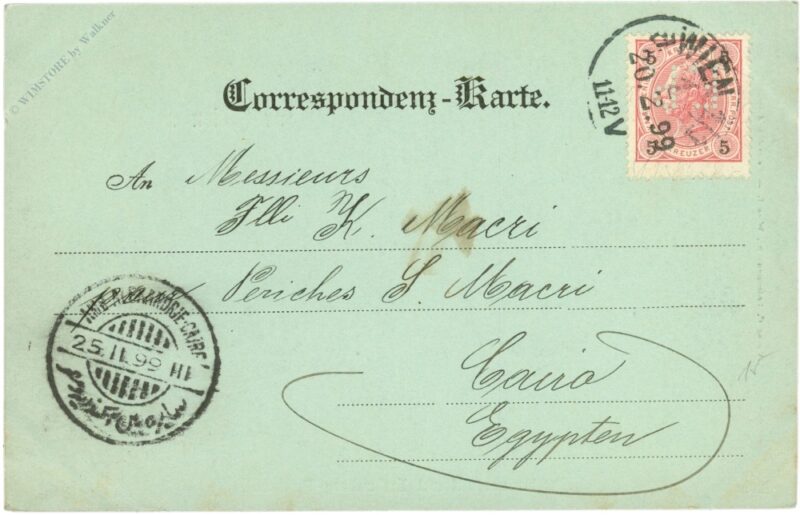 © WIMSTORE by Walkner
Correspondenz-Karte.
WIEN
20.2.99
11-12V
5 KREUZER 5
An Messieurs
Flli K. Macri
Periches S. Macri
Cairo
Egypten
ALEXANDRIE-CAIRE
25.II.99 III